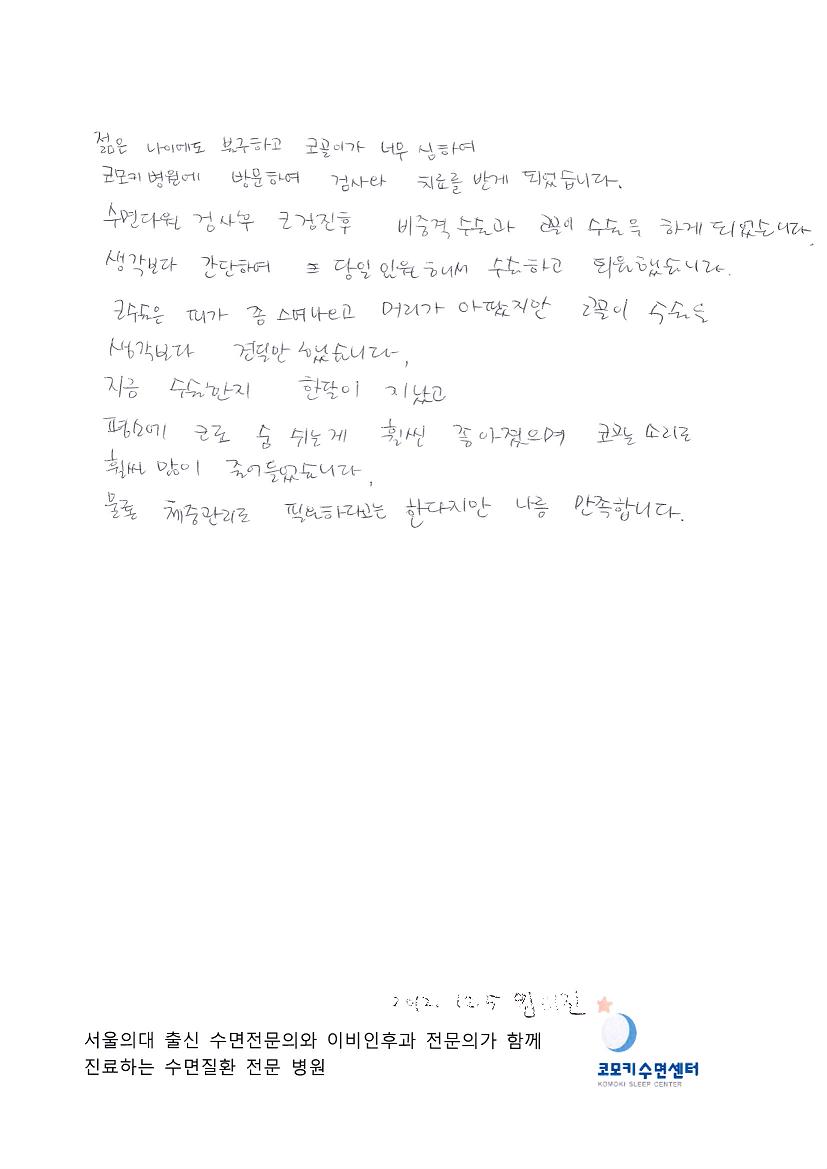 젊은 나이에도 불구하고 코골이가 너무 심하여
코모키 병원에 방문하여 검사와 치료를 받게 되었습니다.
수면다원 검사후 코 검진후 비중격 수술과 코골이 수술을 하게 되었습니다.
생각보다 간단하여 당일 입원해서 수술하고 퇴원했습니다.
코수술은 피가 좀 스며나오고 머리가 아팠지만 코골이 수술은
생각보다 견딜만 했습니다,
지금 수술한지 한달이 지났고
평소에 코로 숨 쉬는게 훨씬 좋아졌으며 코고는 소리도
훨씬 많이 줄어들었습니다,
물론 체중관리도 필요하다고는 한다지만 나름 만족합니다.
12.5
서울의대 출신 수면전문의와 이비인후과 전문의가 함께
진료하는 수면질환 전문 병원
코모키수면센터
KOMOKI SLEEP CENTER